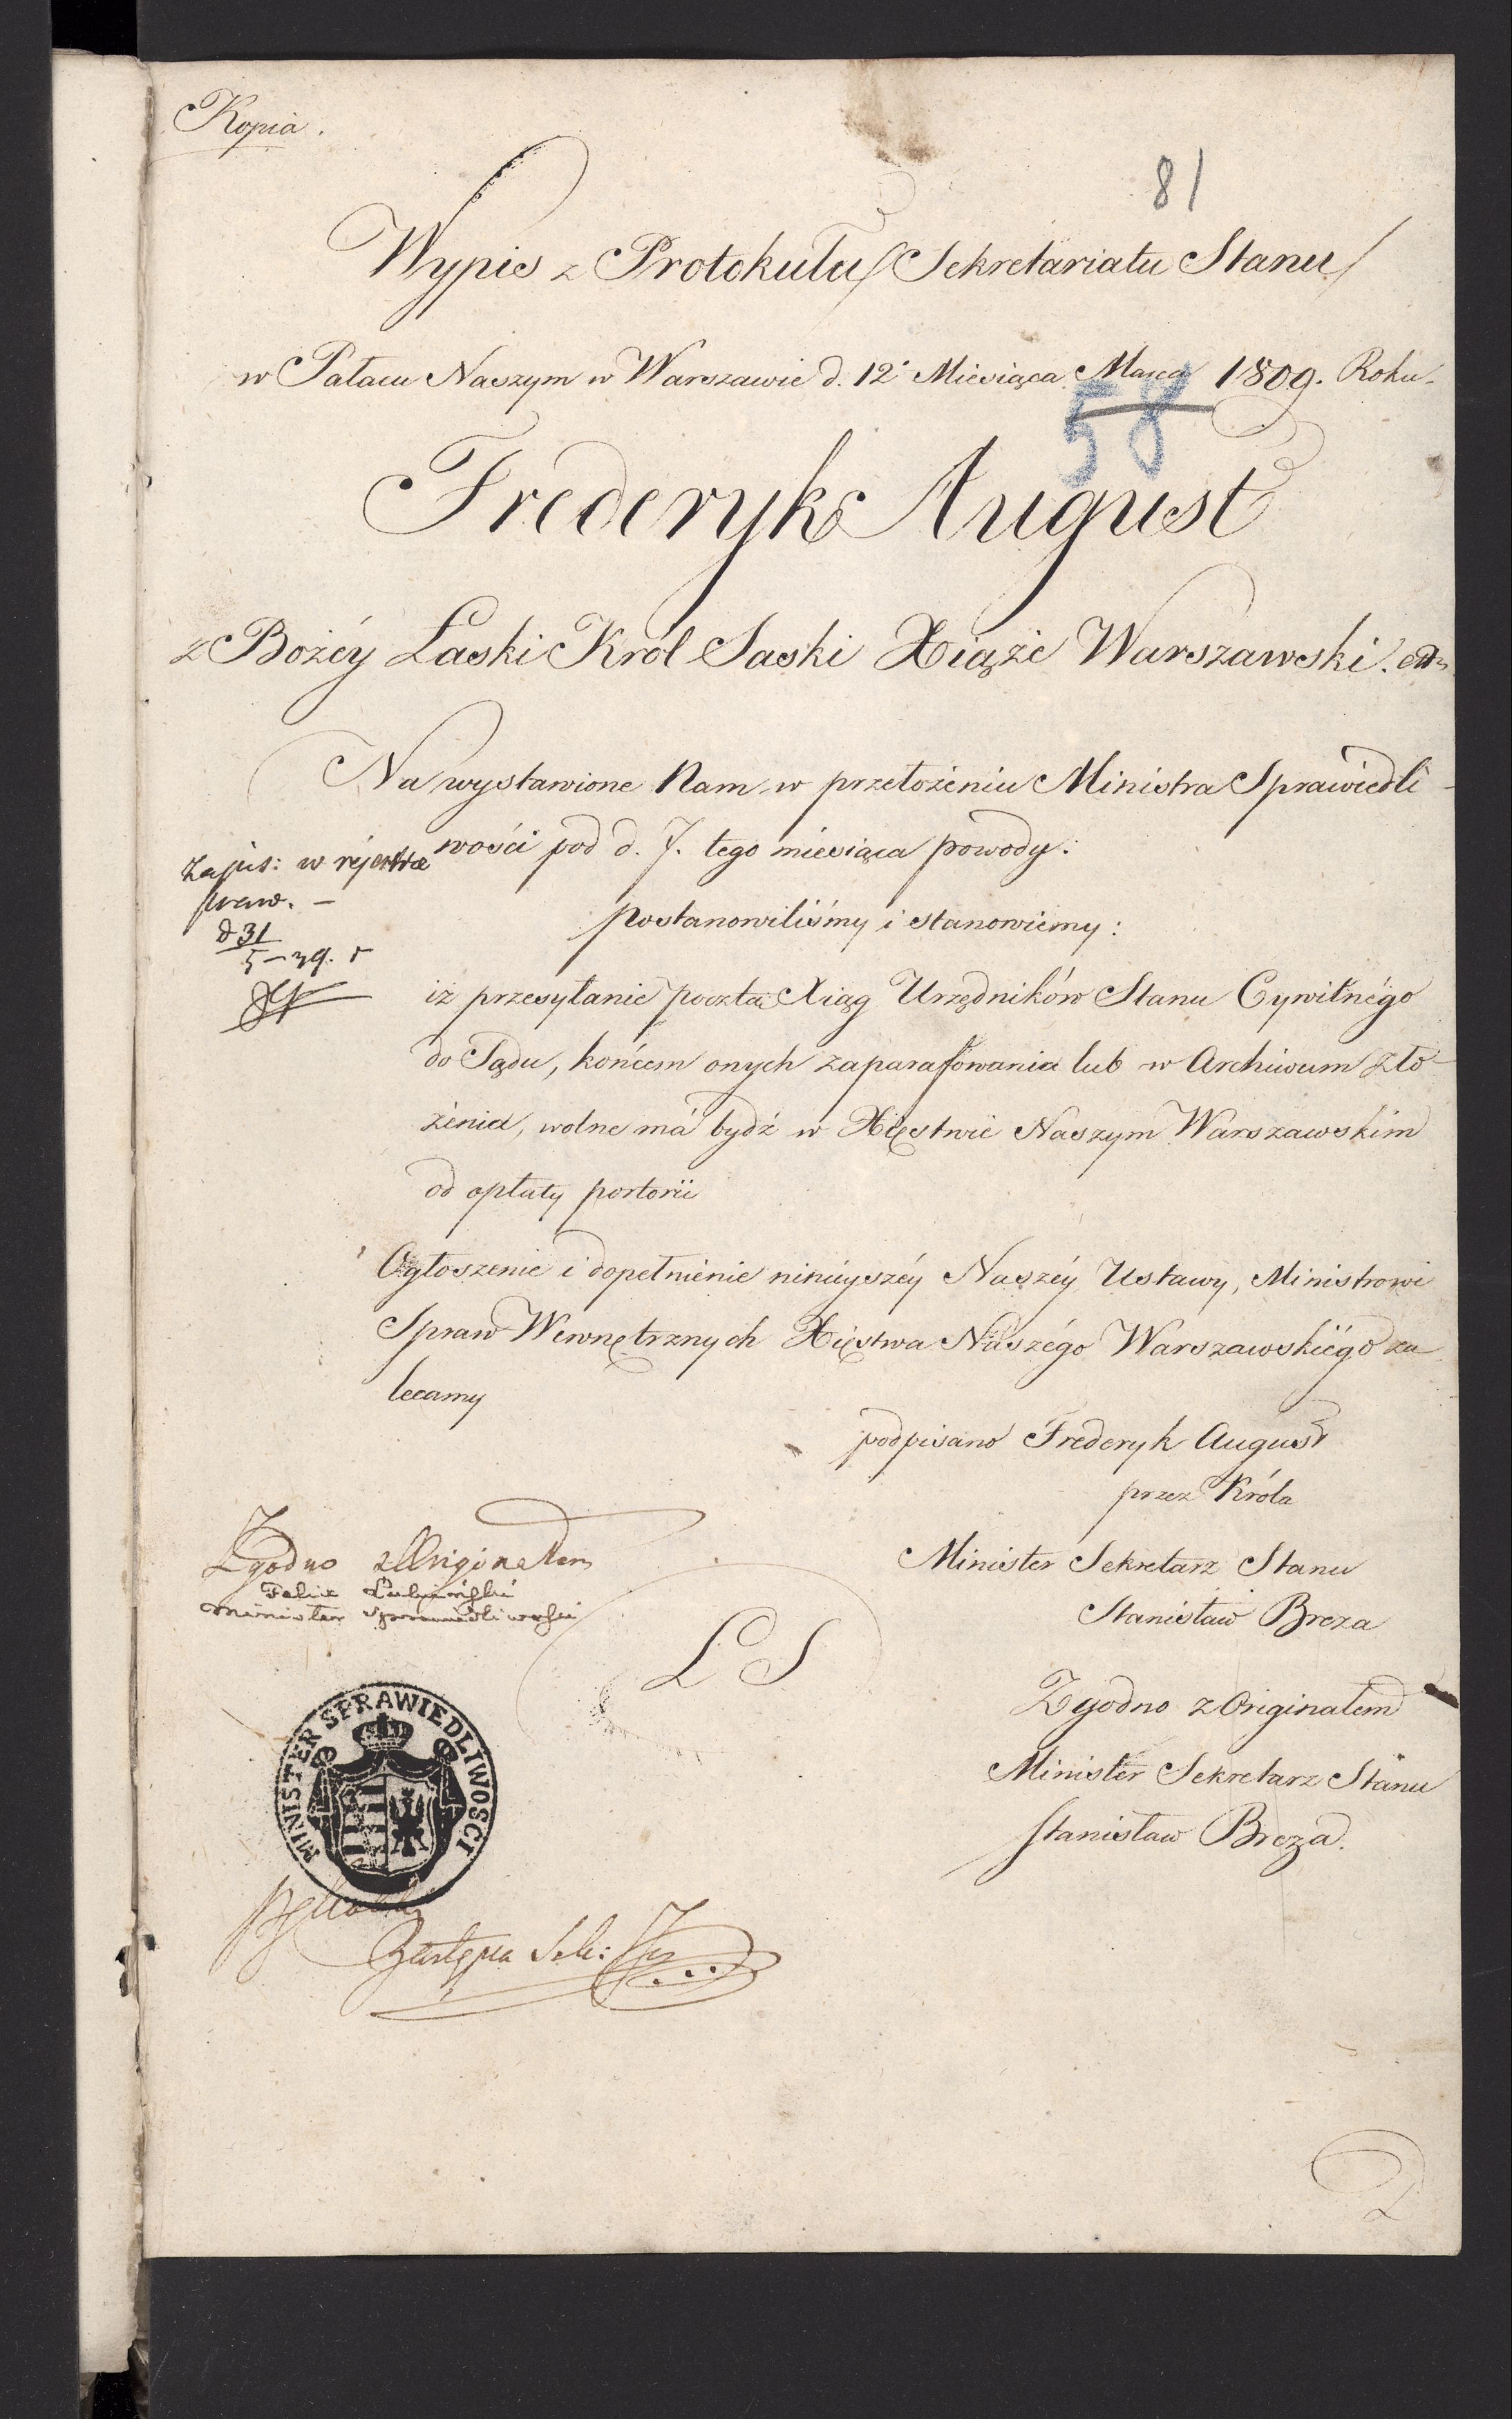 Kopia.
81
Wypis z Protokułu Sekretariatu Stanu
w Pałacu Naszym w Warszawie d. 12. Miesiąca Marca 1809. Roku.
58
Frederyk August
z Bożéy Łaski Król Saski Xiąże Warszawski.
Na wystawione Nam w przełożeniu Ministra Sprawiedli-
wości pod d. 7. tego miesiąca powody:
Zapis: w rejestrze
praw. -
d 31
5-39. r
postanowiliśmy i stanowiemy:
iż przesyłanie pocztą Xiąg Urzędników Stanu Cywilnégo
do Sądu, końcem onych zaparafowania lub w Archiwum zło-
żenia, wolne má bydź w Xięstwie Naszym Warszawskim
od opłaty portorii
Ogłoszenie i dopełnienie ninieyszéy Naszéy Ustawy, Ministrowi
Spraw Wewnętrznych Xięstwa Naszégo Warszawskiégo za
lecamy
podpisano Frederyk August
przez Króla
Minister Sekretarz Stanu
Stanisław Breza
Zgodno z Originałem
Felix Łubieński
Minister Sprawiedliwości
L S
Zgodno z Originałem
Minister Sekretarz Stanu
Stanisław Breza.
MINISTER SPRAWIEDLIWOSCI
Zastępca Sek: